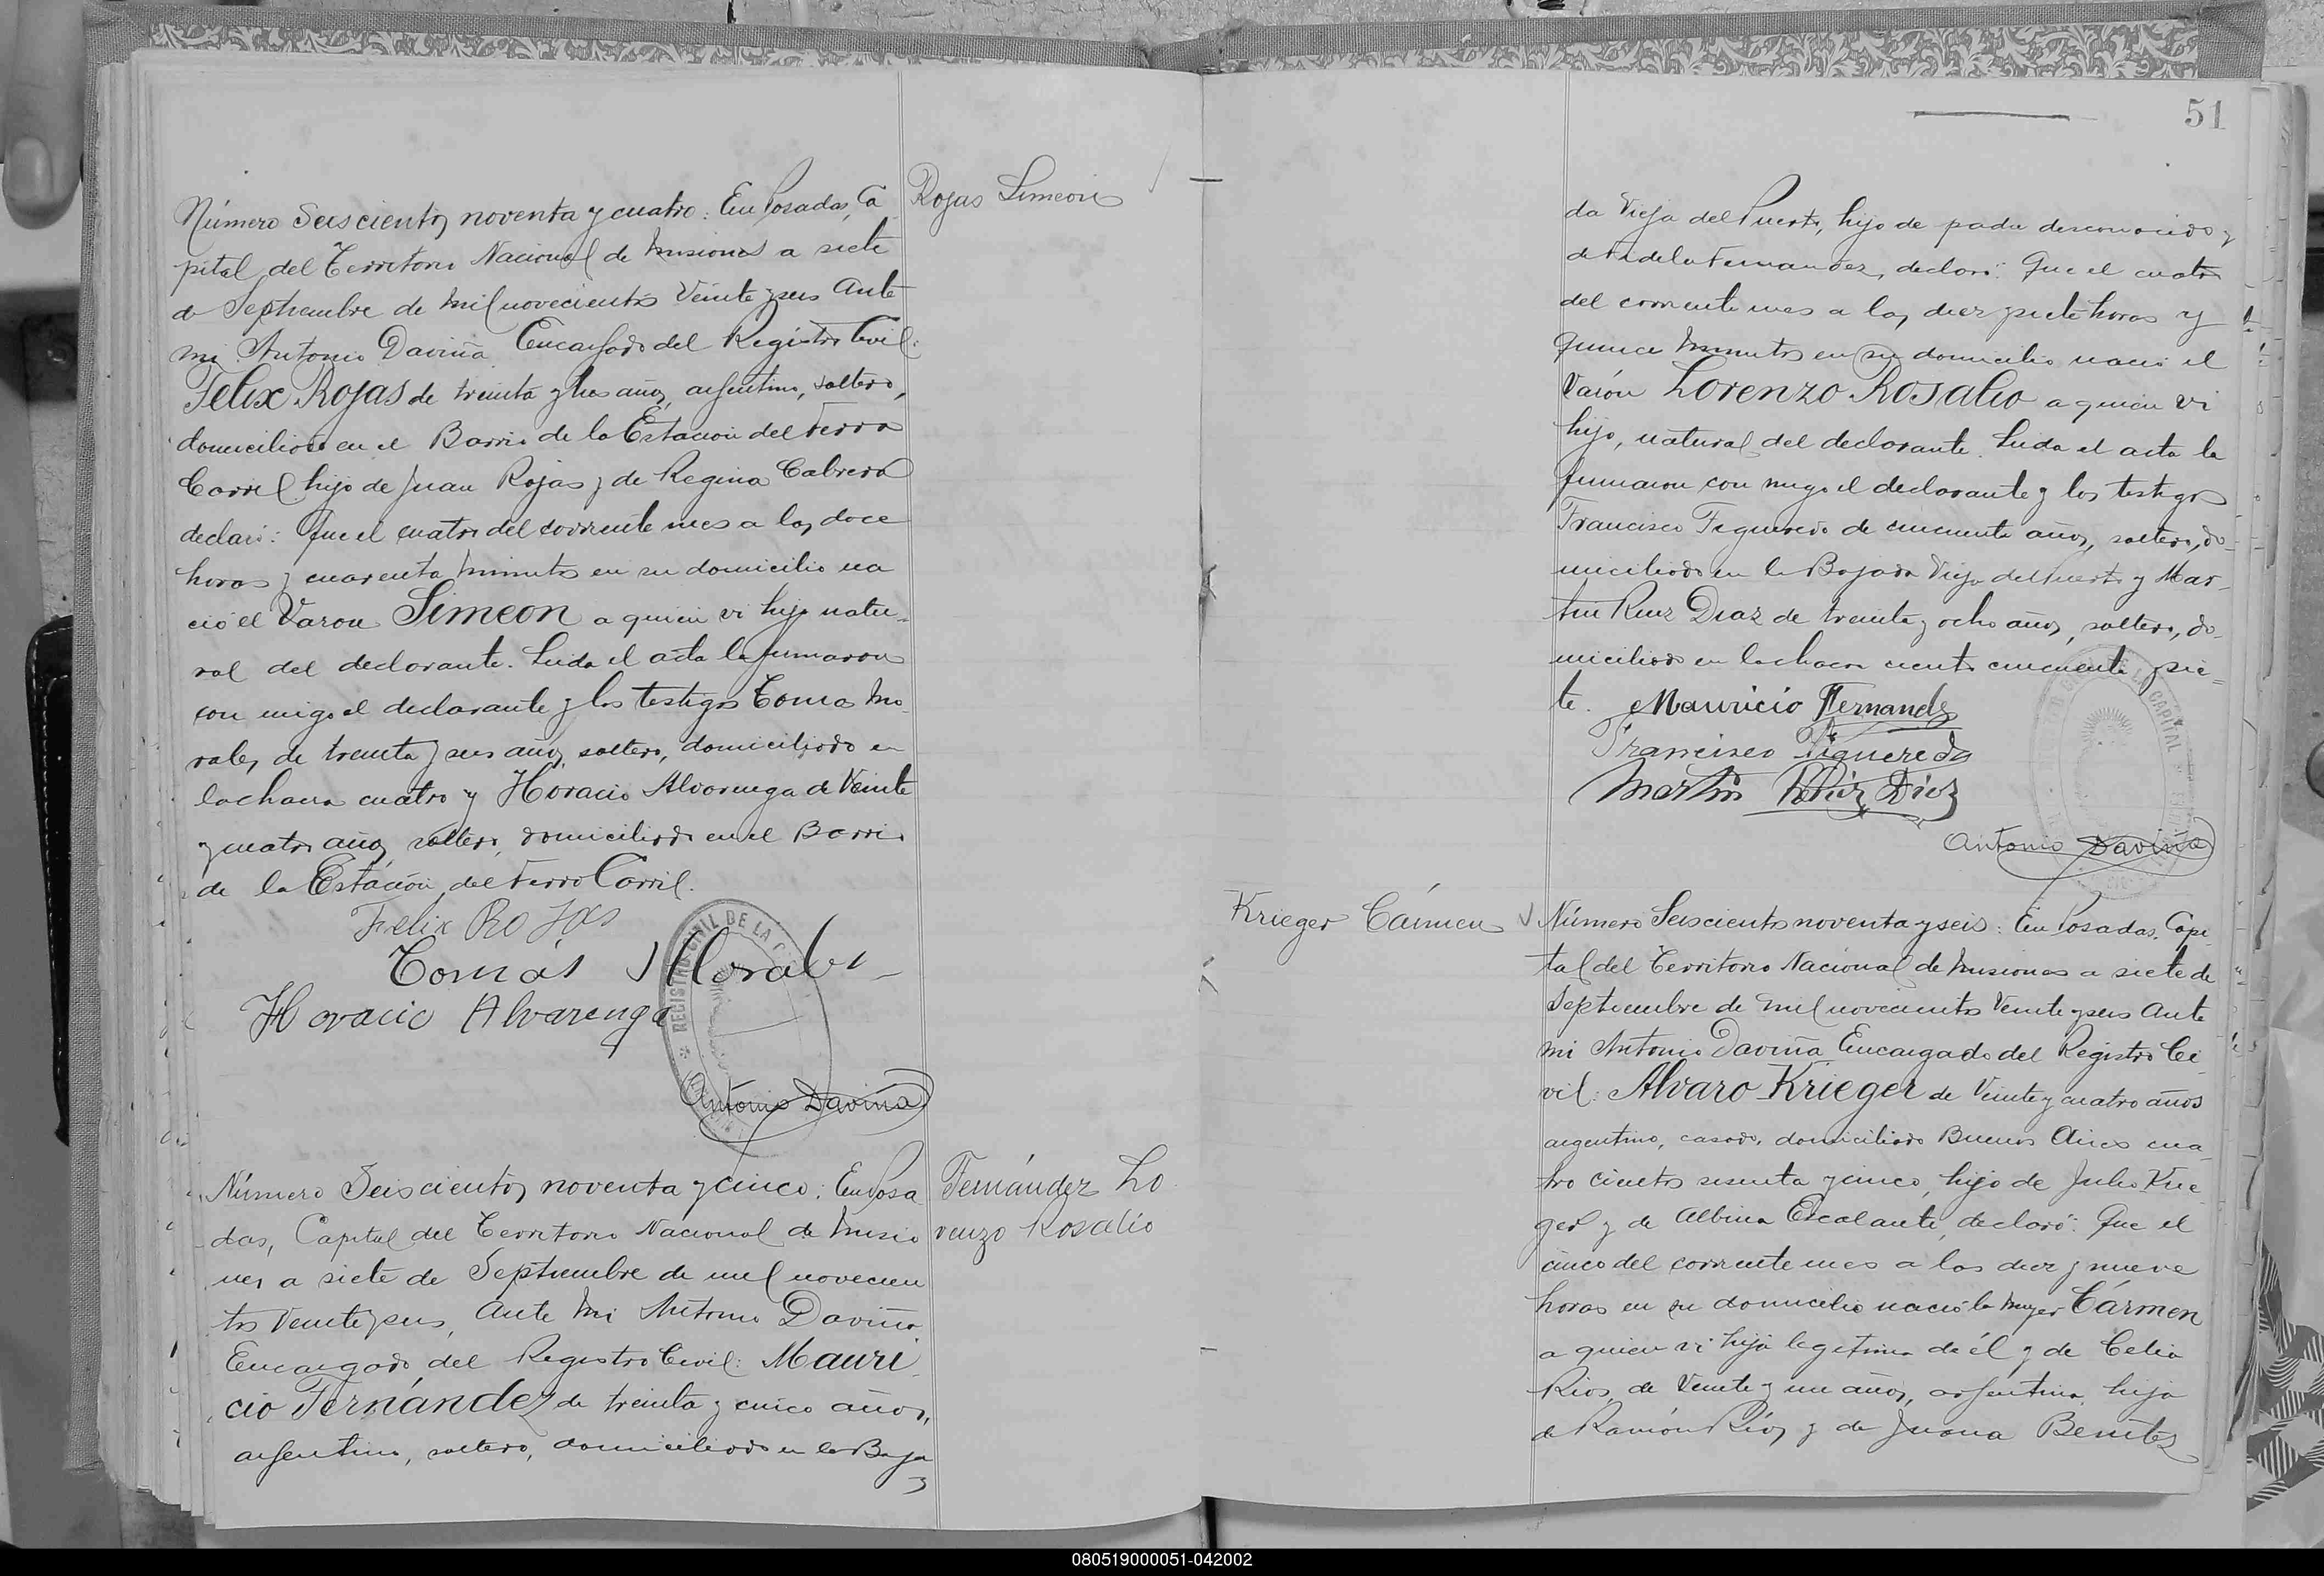 Rojas Simeon
Número Seiscientos noventa y cuatro: En Posadas, Ca
pital del Territorio Nacional de Misiones a siete
de Septiembre de mil novecientos veinte y seis Ante
mi Antonio Daviña Encargado del Registro Civil:
Felix Rojas de treinta y tres años, argentino, soltero,
domiciliado en el Barrio de la Estacion del Ferro
Carril hijo de Juan Rojas y de Regina Cabrera
declaró: Que el cuatro del corriente mes a las doce
horas y cuarenta minutos en su domicilio na
ció el Varon Simeon a quien vi hijo natu-
ral del declarante. Leida el acta la firmaron
con migo el declarante y los testigos Tomas Mo
rales, de treinta y seis años, soltero, domiciliado en
la chacra cuatro y Horacio Alvarenga de Veinte
y cuatro años, soltero, domiciliado en el Barrio
de la Estación del Ferro Carril.
Felix Rojas
Tomás Morales
Horacio Alvarenga
REGISTRO CIVIL DE LA
Antonio Daviña
Fernández Lo
renzo Rosalio
Número Seiscientos noventa y cinco: En Posa
das, Capital del Territorio Nacional de Misio
nes a siete de Septiembre de mil novecien
tos veinte y seis, Ante mi Antonio Daviña
Encargado del Registro Civil: Mauri
cio Fernández de treinta y cinco años,
argentino, soltero, domiciliado en la Baja
51
da Vieja del Puerto, hijo de padre desconocido y
de Fernandez, declaró: Que el cuatro
del corriente mes a las diez y siete horas y
quince minutos en su domicilio nació el
Varón Lorenzo Rosalio a quien vi
hijo, natural del declarante. Leida el acta la
firmaron con migo el declarante y los testigos
Francisco Figueredo de cincuenta años, soltero, do-
miciliado en la Bajada Vieja del Puerto y Mar-
tin Ruiz Diaz de treinta y ocho años, soltero, do-
miciliado en la chacra ciento cincuenta y sie-
te. Mauricio Fernandez
Francisco Figueredo
Martin Ruiz Diez
LA CAPITAL
Antonio Daviña
Krieger Cármen
Número Seiscientos noventa y seis: En Posadas, Capi-
tal del Territorio Nacional de Misiones a siete de
Septiembre de mil novecientos Veinte y seis Ante
mi Antonio Daviña Encargado del Registro Ci-
vil: Alvaro Krieger de Veinte y cuatro años
argentino, casado, domiciliado Buenos Aires cua
tro cientos sesenta y cinco, hijo de Julio Krie
ger y de Albina Escalante, declaró: Que el
cinco del corriente mes a las diez y nueve
horas en su domicilio nació la mujer Cármen
a quien vi hija legitima de él y de Celia
Rios, de Veinte y un años, argentina, hija
de Ramón Ríos y de Juana Benítez
080519000051-042002